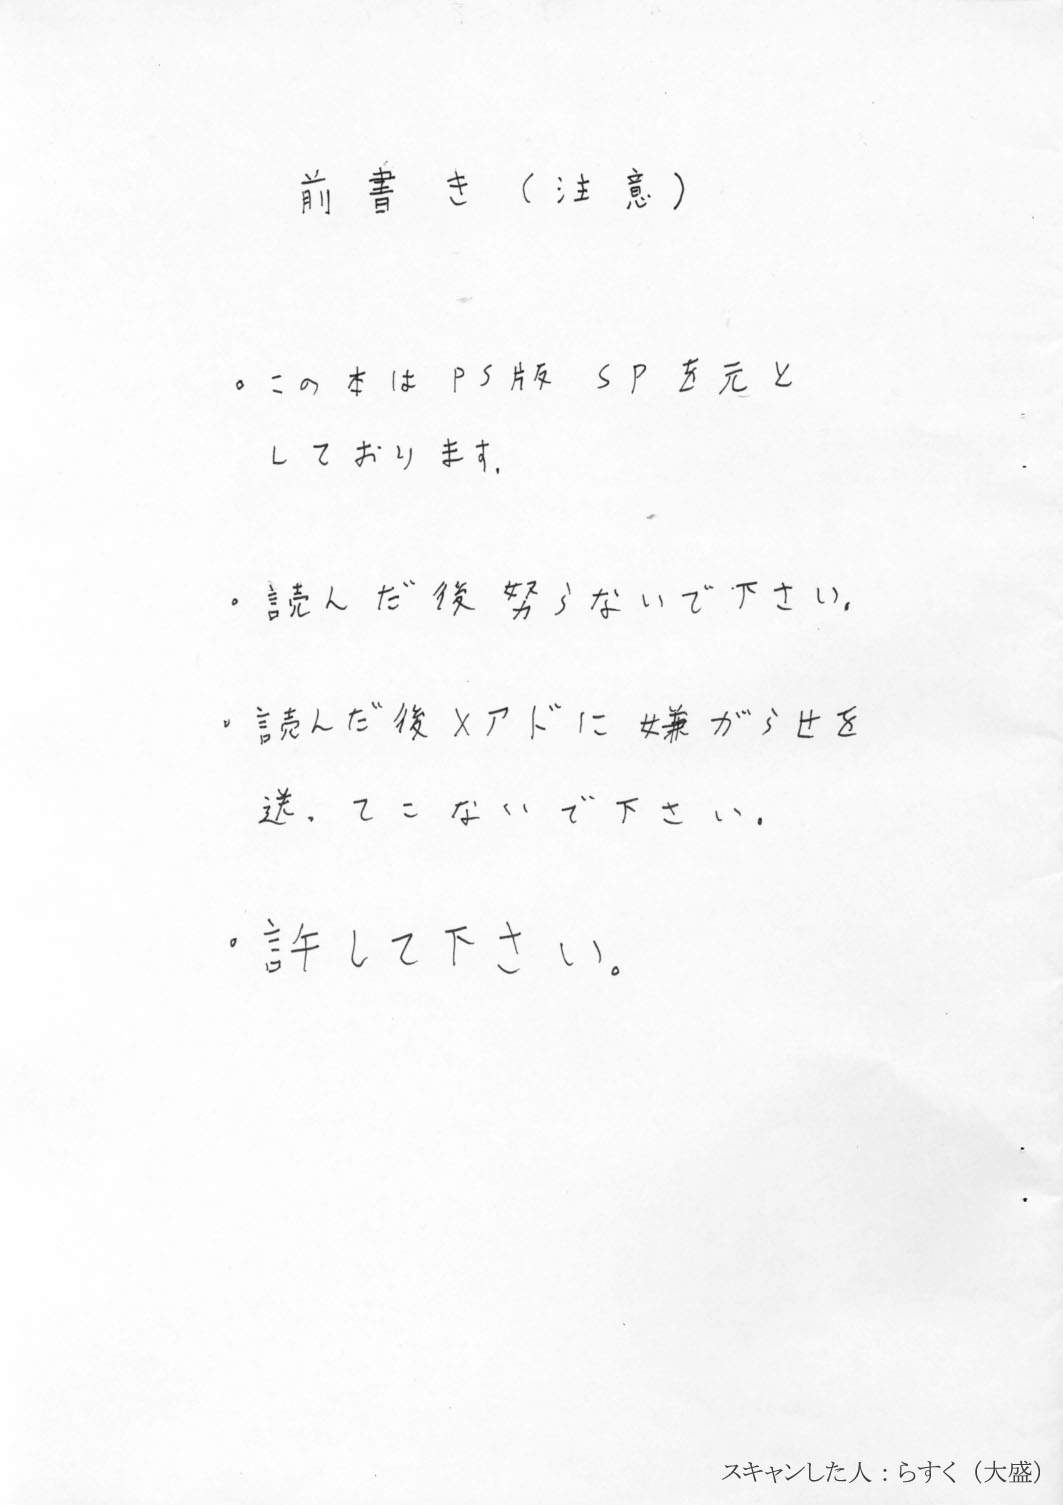 前書き(注意)
・この本はPS版 SPを元と
しております.
・読んだ後努らないで下さい.
・読んだ後メアドに嫌がらせを
送ってこないで下さい.
・許して下さい。
スキャンした人:らすく(大盛)